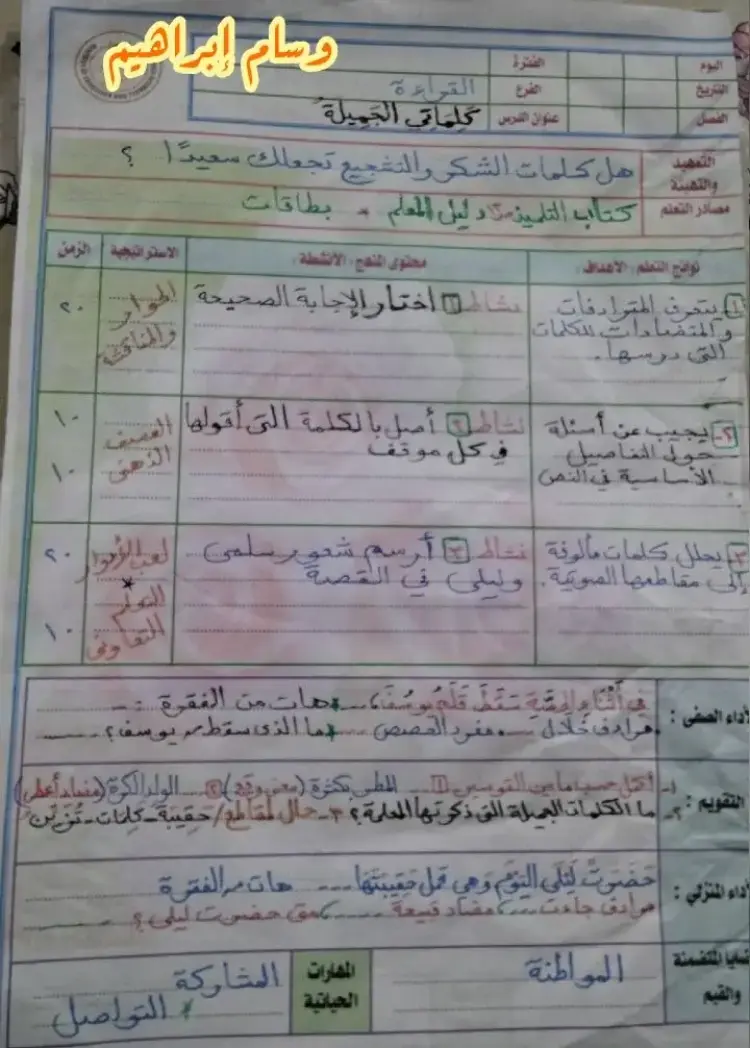 وسام إبراهيم
اليوم
الفترة
التاريخ
الفرع
القراءة
الفصل
عنوان الدرس
كَلِمَاتي الجَمِيلَةُ
التمهيد والتهيئة
هل كلمات الشكر والتشجيع تجعلك سعيدًا ؟
مصادر التعلم
كتاب التلميذ ودليل المعلم - بطاقات
نواتج التعلم : الأهداف :
محتوى المنهج : الأنشطة :
الاستراتيجية
الزمن
١- يتعرف المترادفات
والمتضادات للكلمات
التى درسها.
نشاط ١ اختار الإجابة الصحيحة
الحوار
والمناقشة
٢٠
٢- يجيب عن أسئلة
حول التفاصيل
الأساسية فى النص
نشاط ٢ أصل بالكلمة التى أقولها
في كل موقف
العصف
الذهنى
١٠
١٠
٣- يحلل كلمات مألوفة
إلى مقاطعها الصوتية.
نشاط ٣ أرسم شعور سلمى
وليلى في القصة
لعب الأدوار
*
التعلم
التعاونى
٢٠
١٠
الأداء الصفى :
فِى أَثْنَاءِ الحِصَّةِ سَقَطَ قَلَمُ يُوسُفَ، هات من الفقرة :-
مرادف خلال ... مفرد الحصص ... ما الذى سقط من يوسف؟
التقويم :
١- أكمل حسب ما بين القوسين ١ ... المطر بكثرة (معنى وقع) ٢ ... الولد الكرة (مضاد أعطى)
٢- ما الكلمات الجميلة التى ذكرتها المعلمة؟ ٣- حلل لمقاطع/ حَقِيبَة - كلمات -
الأداء المنزلي :
حَضَرَتْ لَيْلَى اليَوْمَ وَهِى تحمل حَقِيبَتَهَا ... هات من الفقرة
مرادف جاءت ... مضاد قبيحة ... متى حضرت ليلى ؟
القضايا المتضمنة
والقيم
المواطنة
المهارات
الحياتية
المشاركة
* التواصل